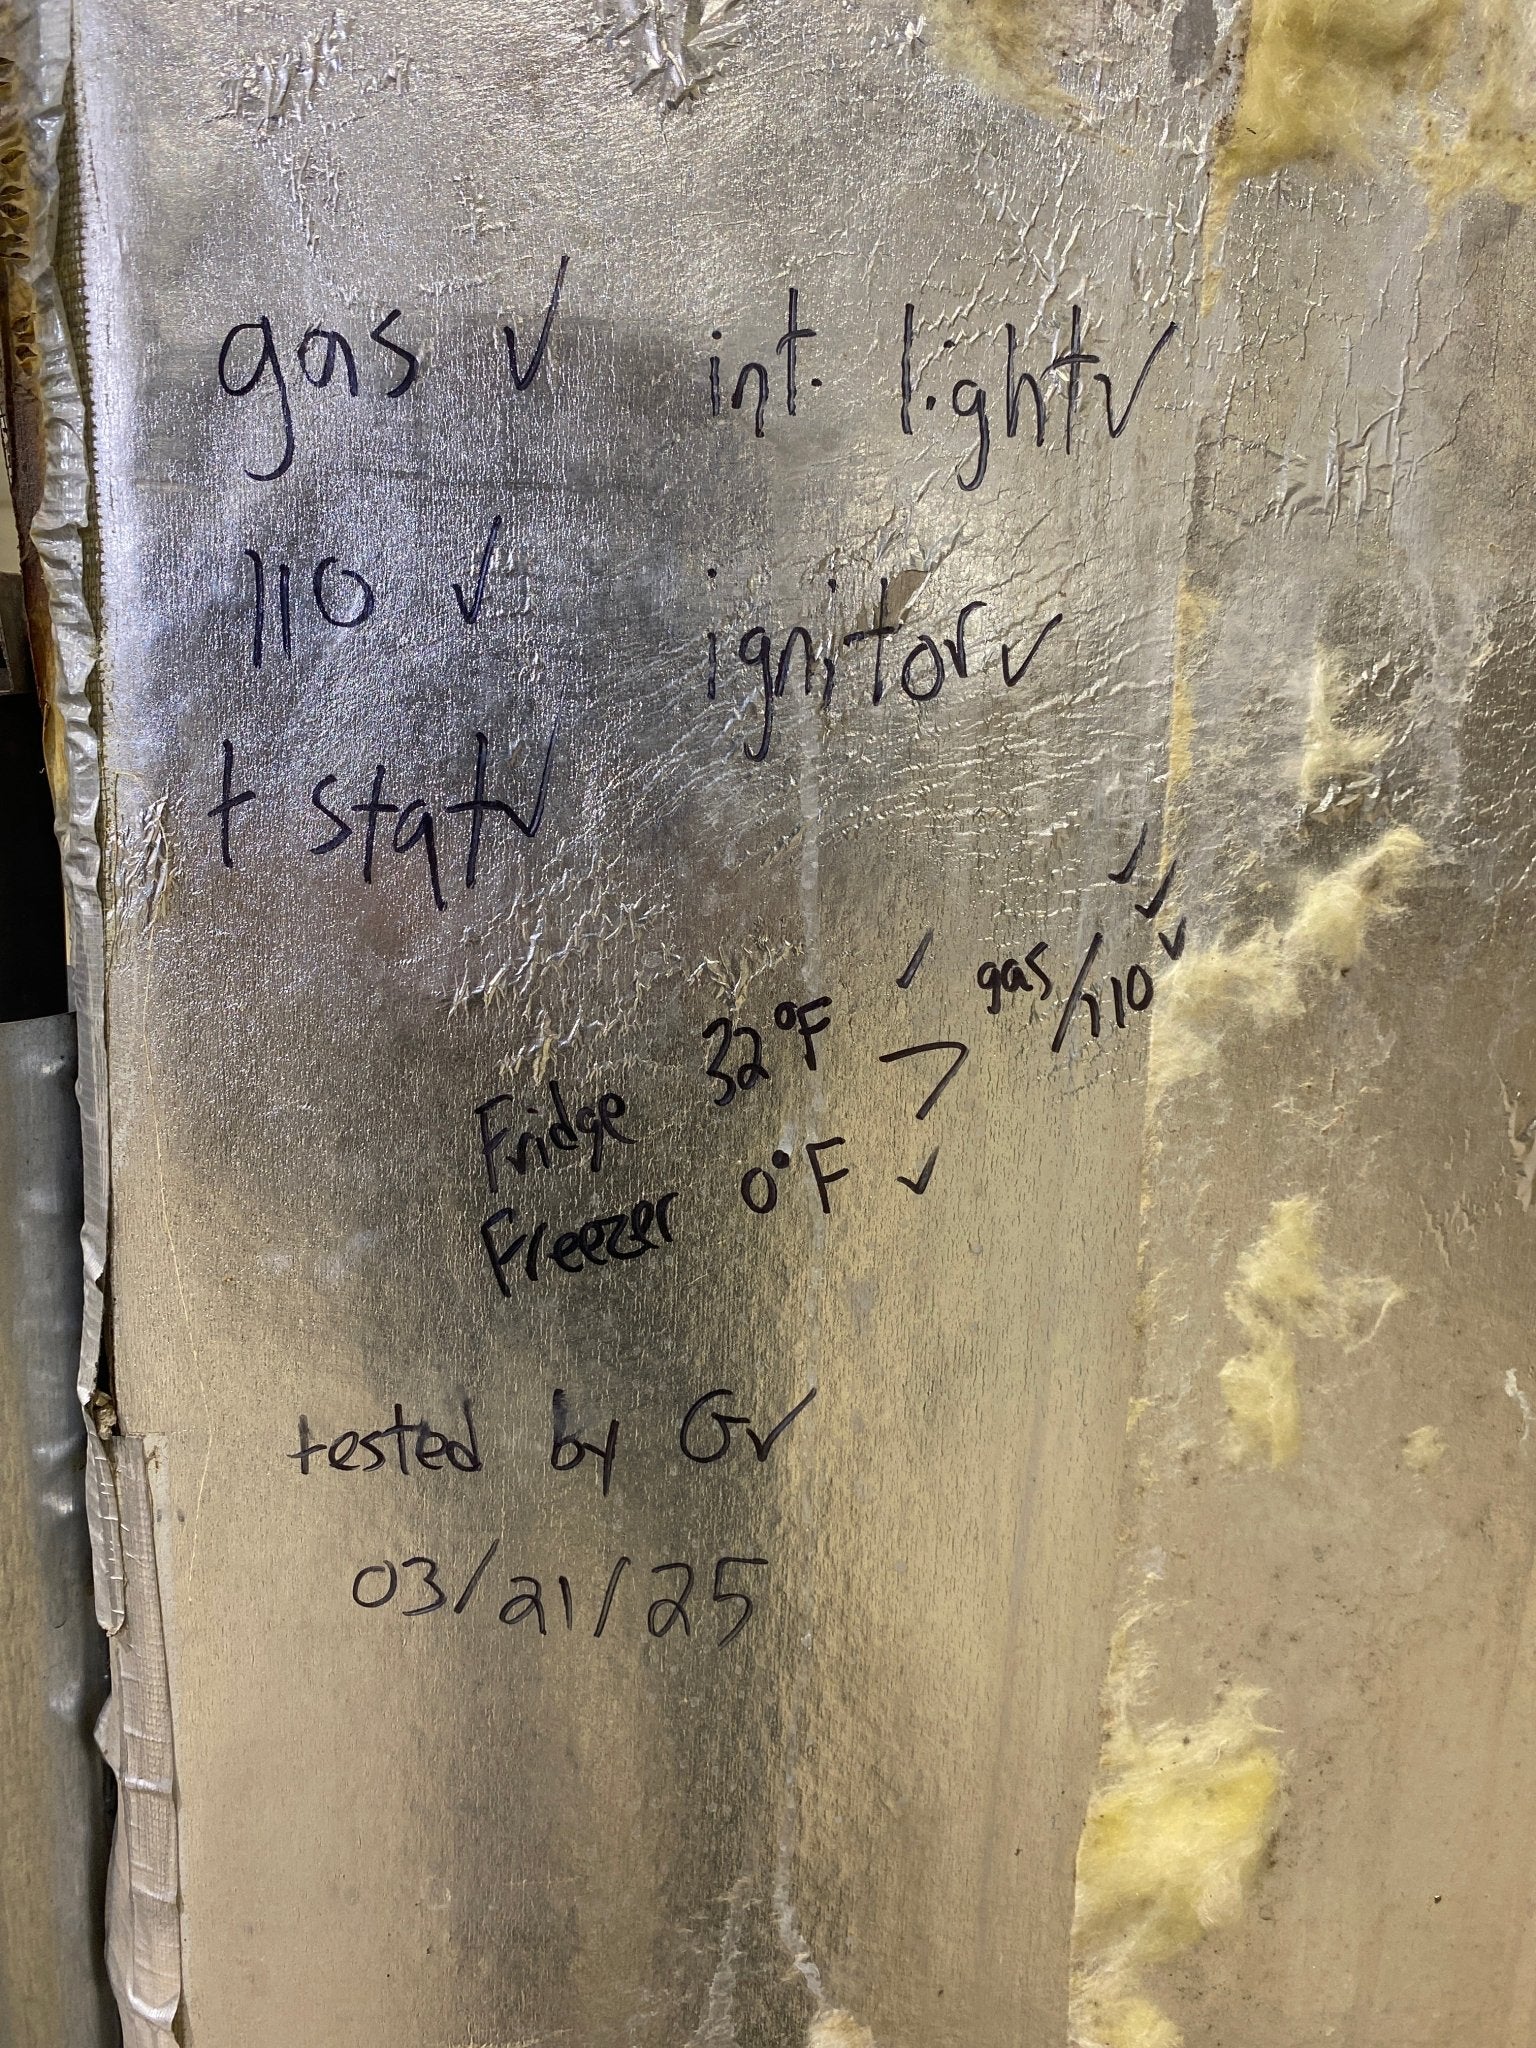 gas ✓ int. light ✓
110 ✓ ignitor ✓
t stat ✓
✓✓✓
Fridge 32°F ✓ > gas/110
Freezer 0°F ✓
tested by G ✓
03/21/25